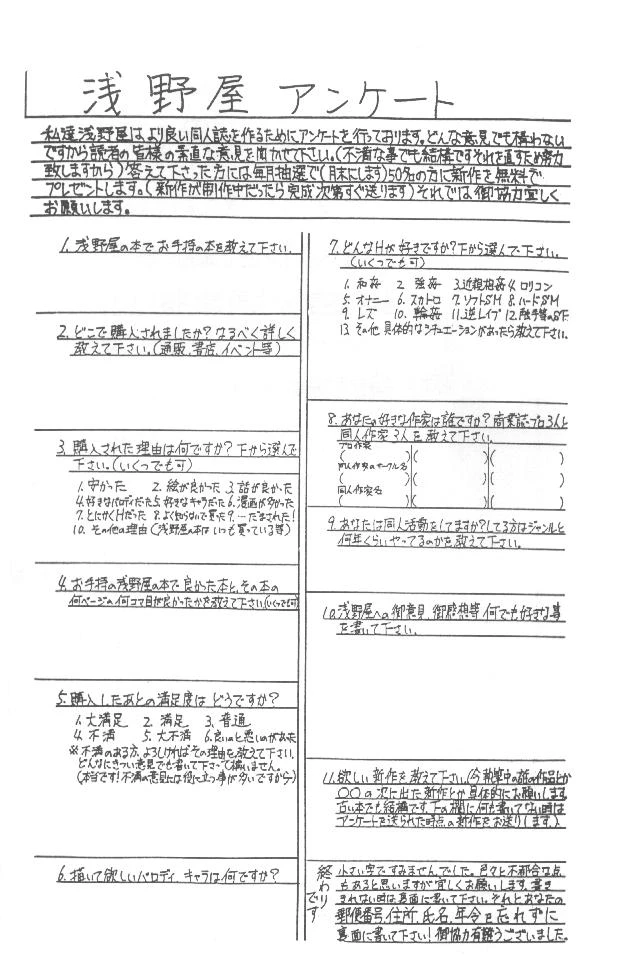 浅野屋 アンケート
私達浅野屋はより良い同人誌を作るためにアンケートを行っております。どんな意見でも構わない
ですから読者の皆様の素直な意見を聞かせて下さい。(不満な事でも結構ですそれを直すため努力
致しますから)答えて下さった方には毎月抽選で(月末にします)50名の方に新作を無料で
プレゼントします。(新作が制作中だったら完成次第すぐ送ります)それでは御協力宜しく
お願いします。
1. 浅野屋の本でお手持の本を教えて下さい.
2. どこで購入されましたか?なるべく詳しく
教えて下さい。(通販、書店、イベント等)
3. 購入された理由は何ですか?下から選んで
下さい。(いくつでも可)
1. 安かった 2. 絵が良かった 3. 話が良かった
4. 好きなパロディだった 5. 好きなキャラだった 6. 漫画が多かった
7. とにかくHだった 8. よく知らないで買った 9. …だまされた!
10. その他の理由(浅野屋の本はいつも買っている等)
4. お手持の浅野屋の本で良かった本と、その本の
何ページの何コマ目が良かったかを教えて下さい(いくつでも可)
5. 購入したあとの満足度はどうですか?
1. 大満足 2. 満足 3. 普通
4. 不満 5. 大不満 6. 良いのと悪いのがあった
※不満のある方、よろしければその理由を教えて下さい.
どんなにきつい意見でも書いて下さって構いません。
(本当です!不満の意見には役に立つ事が多いですから)
6. 描いて欲しいパロディ、キャラは何ですか?
7. どんなHが好きですか?下から選んで下さい。
(いくつでも可)
1. 和姦 2. 強姦 3. 近親相姦 4. ロリコン
5. オナニー 6. スカトロ 7. ソフトSM 8. ハードSM
9. レズ 10. 輪姦 11. 逆レイプ 12. 触手等のSF
13. その他 具体的なシチュエーションがあったら教えて下さい.
8. あなたの好きな作家は誰ですか?商業誌・プロ3人と
同人作家3人を教えて下さい.
プロ作家
( )( )( )
同人作家のサークル名
( )( )( )
同人作家名
( )( )( )
9. あなたは同人活動をしてますか?してる方はジャンルと
何年くらいやってるのかを教えて下さい。
10. 浅野屋への御意見、御感想等、何でも好きな事
を書いて下さい.
11. 欲しい新作を教えて下さい。(今執筆中の の作品とか
〇〇の次に出た新作とか具体的にお願いします
古い本でも結構です。下の欄に何も書いてない時は
アンケートを送られた時点の新作をお送りします。)
終わりです
小さい字ですみませんでした。色々と不都合な点
もあると思いますが宜しくお願いします。書き
きれない時は裏面に書いて下さい。それとあなたの
郵便番号、住所、氏名、年令を忘れずに
裏面に書いて下さい!御協力有難うございました。